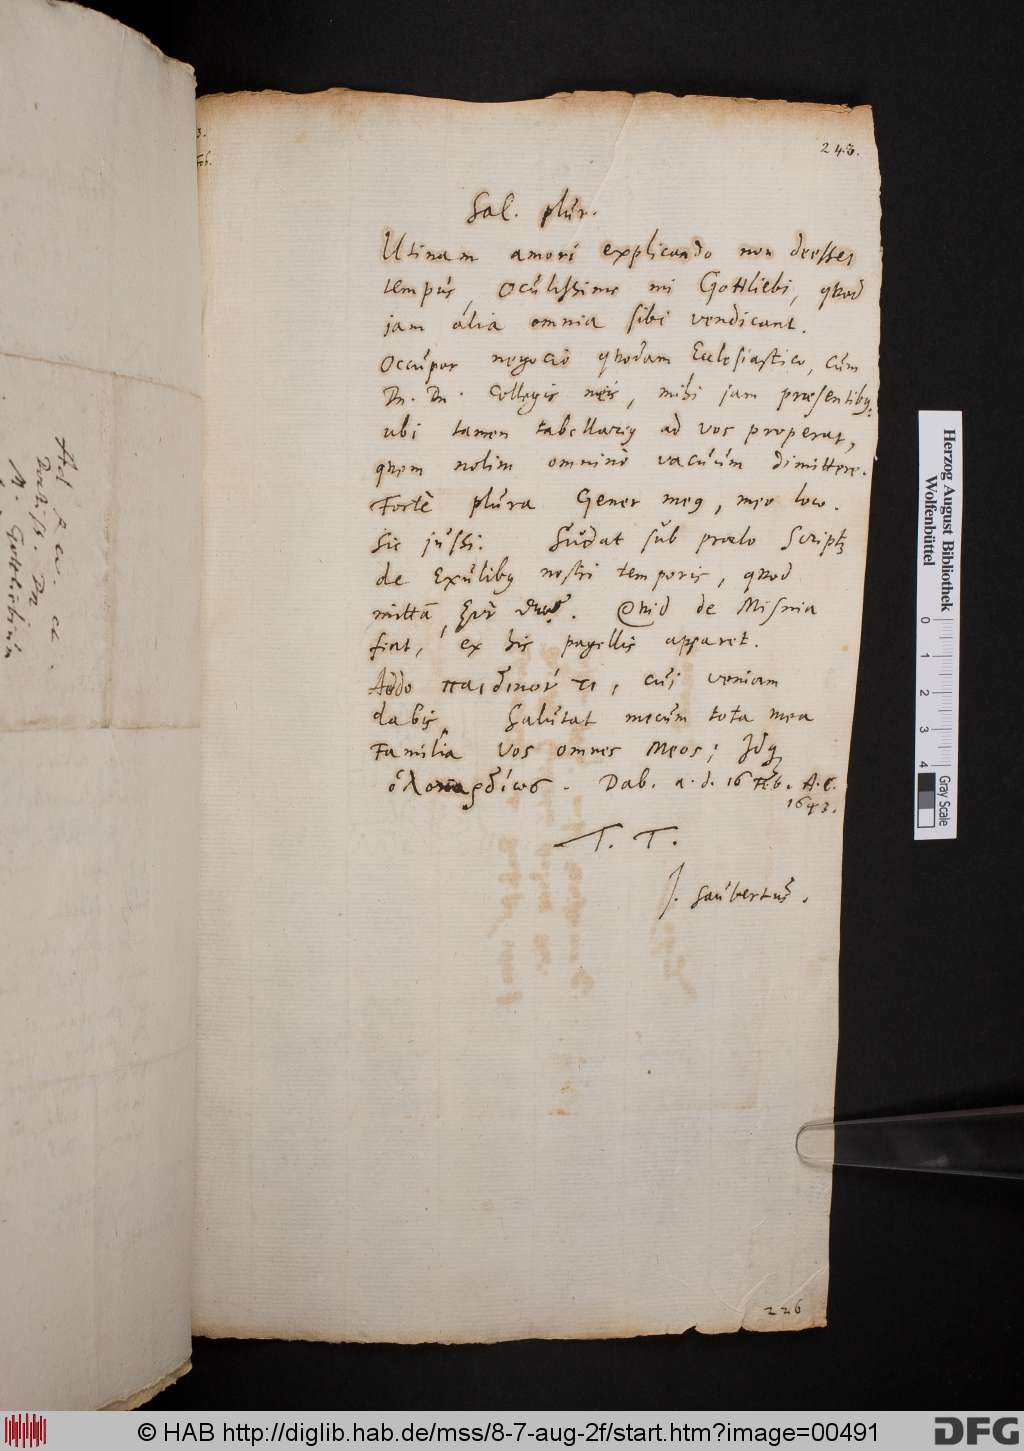 243.
Sal. plur.
Utinam amori explicando non deesset
tempus, Oculissime mi Gottliebi, quod
jam alia omnia sibi vendicant.
Occupor negocio quodam Ecclesiastico, cum
Dn. Dn. Collegis meis, mihi jam præsentibꝰ,
ubi tamen tabellariꝰ ad vos properat,
quem nolim omninò vacuum dimittere.
Fortè plura Gener meꝰ, meo loco.
Sic jussi. Sudat sub prælo Scriptū
de Exulibꝰ nostri temporis, quod
mittā, σὺν θεῷ. Quid de Misnia
fiat, ex his pagellis apparet.
Addo παιδινόν τι, cui veniam
dabis. Salutat mecum tota mea
Familia Vos omnes Meos; Idq̃
ὁλοκαρδίως. Dab. a. d. 16 Feb. A. C.
1643.
T. T.
J. Saubertus.
226
Ad
Gottliebium
Herzog August Bibliothek
Wolfenbüttel
0 1 2 3 4
Gray Scale
© HAB http://diglib.hab.de/mss/8-7-aug-2f/start.htm?image=00491
DFG